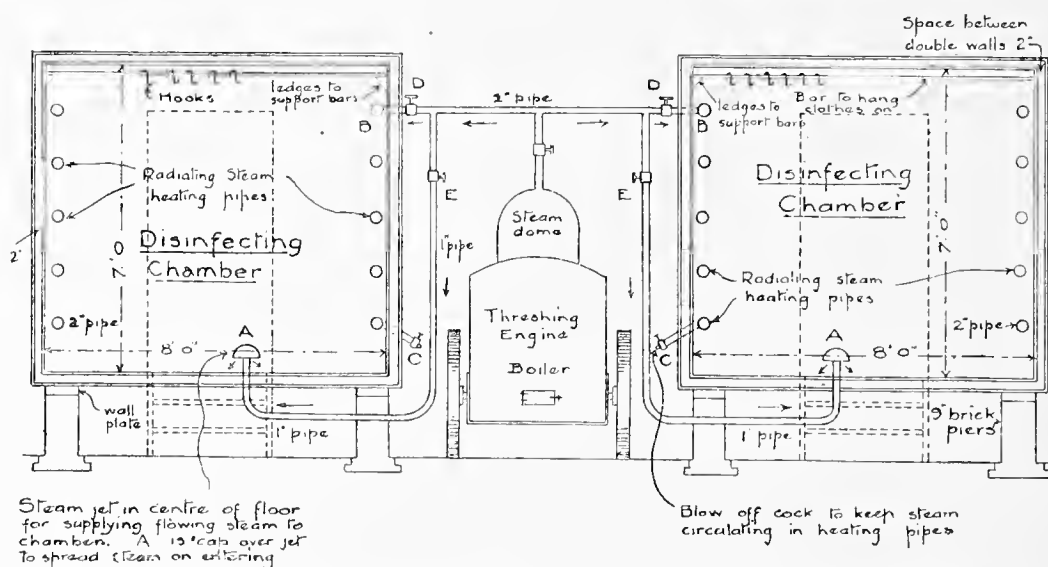 Space between
double walls 2"
Hooks
ledges to
support bars
D
B
2" pipe
D
B
ledges to
support bars
Bar to hang
clothes on
Radiating Steam
heating pipes
Disinfecting
Chamber
2"
7'.0"
E
1" pipe
Steam
dome
E
Disinfecting
Chamber
7'.0"
Radiating steam
heating pipes
2" pipe
A
8' 0"
C
Threshing
Engine
Boiler
C
A
8' 0"
2" pipe
wall
plate
1" pipe
1" pipe
9" brick
piers
Steam jet in centre of floor
for supplying flowing steam to
chamber. A is cap over jet
to spread steam on entering
Blow off cock to keep steam
circulating in heating pipes